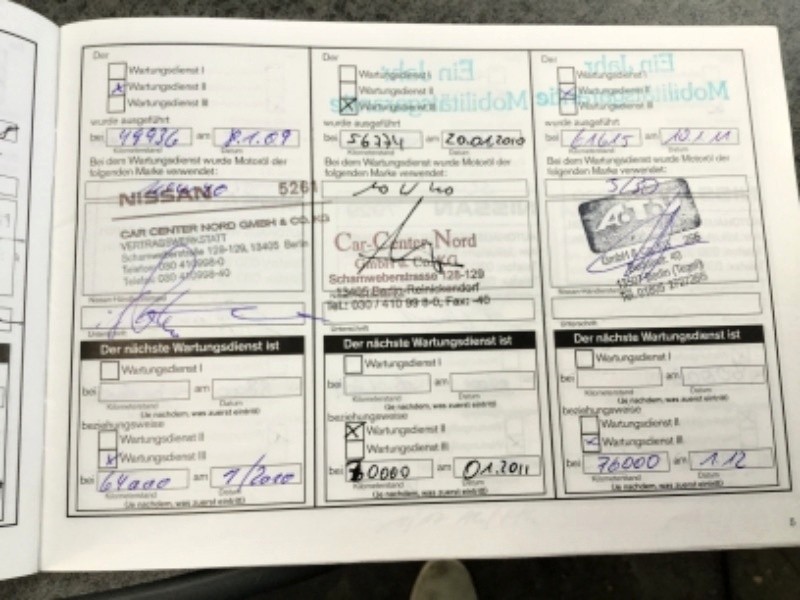 Der
Wartungsdienst I
Wartungsdienst II
Wartungsdienst III
wurde ausgeführt
bei 49936 am 8.1.09
Kilometerstand Datum
Bei dem Wartungsdienst wurde Motoröl der
folgenden Marke verwendet:
NISSAN 5261
CAR CENTER NORD GMBH & CO. KG
VERTRAGSWERKSTATT
Scharnweberstraße 128-129, 13405 Berlin
Telefon 030 410998-0
Telefax 030 410998-40
Unterschrift
Der nächste Wartungsdienst ist
Wartungsdienst I
bei am
Kilometerstand Datum
(Je nachdem, was zuerst eintritt)
beziehungsweise
Wartungsdienst II
Wartungsdienst III
bei 64000 am 1/2010
Kilometerstand Datum
(Je nachdem, was zuerst eintritt)
Der
Wartungsdienst I
Wartungsdienst II
Wartungsdienst III
wurde ausgeführt
bei 56774 am 20.01.2010
Kilometerstand Datum
Bei dem Wartungsdienst wurde Motoröl der
folgenden Marke verwendet:
10 W 40
Car-Center Nord
GmbH & Co. KG
Scharnweberstrasse 128-129
13405 Berlin-Reinickendorf
Tel.: 030 / 410 99 8-0, Fax: -40
Unterschrift
Der nächste Wartungsdienst ist
Wartungsdienst I
bei am
Kilometerstand Datum
(Je nachdem, was zuerst eintritt)
beziehungsweise
Wartungsdienst II
Wartungsdienst III
bei 70000 am 01.2011
Kilometerstand Datum
(Je nachdem, was zuerst eintritt)
Der
Wartungsdienst I
Wartungsdienst II
Wartungsdienst III
wurde ausgeführt
bei 61615 am
Kilometerstand Datum
Bei dem Wartungsdienst wurde Motoröl der
folgenden Marke verwendet:
13407 Berlin (Tegel)
Unterschrift
Der nächste Wartungsdienst ist
Wartungsdienst I
bei am
Kilometerstand Datum
(Je nachdem, was zuerst eintritt)
beziehungsweise
Wartungsdienst II
Wartungsdienst III
bei 76000 am 1.12
Kilometerstand Datum
(Je nachdem, was zuerst eintritt)